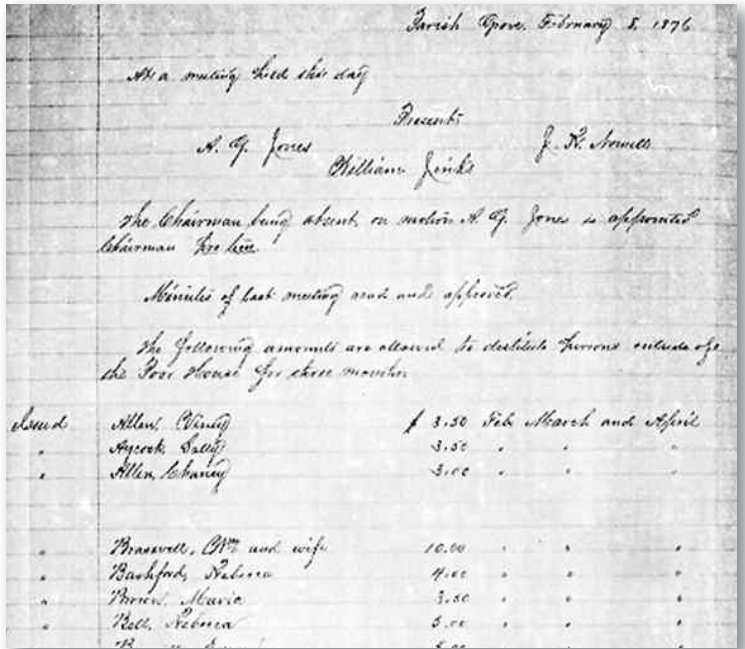 Parish Grove, February 8, 1876
At a meeting held this day
Present
A. G. Jones J. R. Nowells
William Jinks
The Chairman being absent, on motion A. G. Jones is appointed
Chairman Pro tem.
Minutes of last meeting read and approved.
The following amounts are allowed to destitute persons outside of
the Poor House for three months
Issued Allen, $ 3.50 Feb. March and April
" Aycock, Sally 3.50 " " "
" Allen, Chaney 3.00 " " "
" Braswell, Wm and wife 10.00 " " "
" Bashford, Rebecca 4.00 " " "
" Brown, Maria 3.50 " " "
" Bell, Rebecca 5.00 " " "